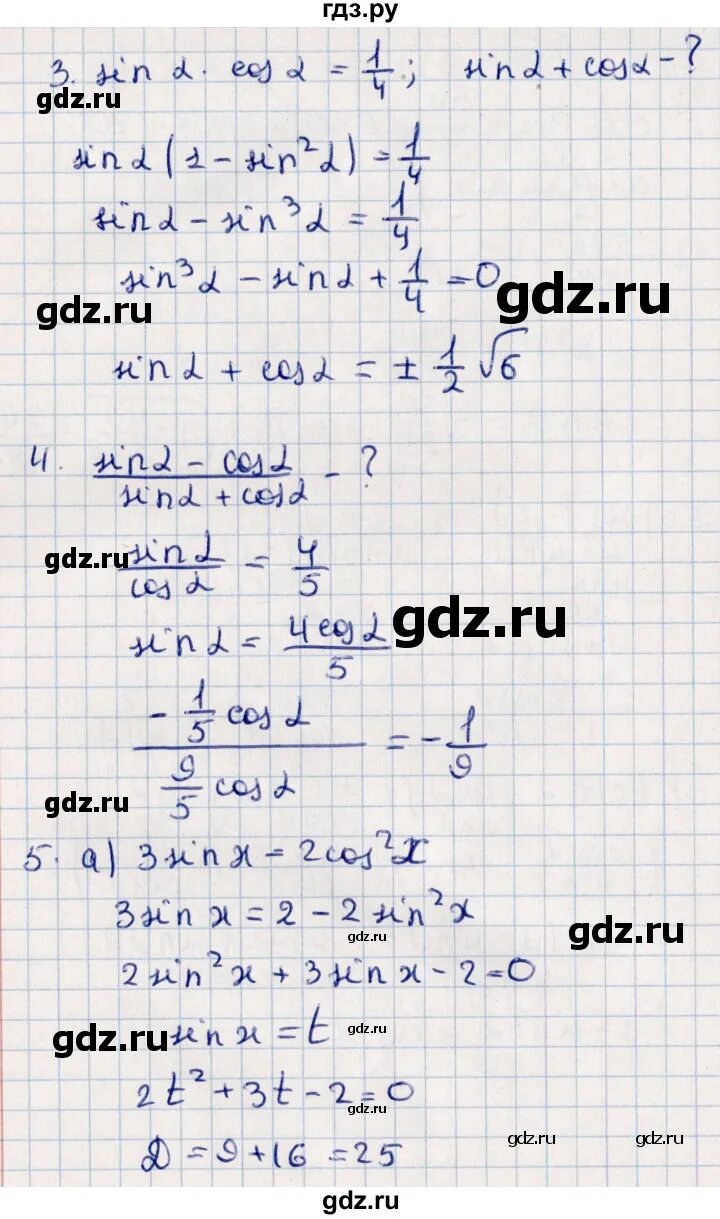 гдз.ру
3. sin α · cos α = 1/4; sin α + cos α - ?
gdz.ru
sin α (1 - sin² α) = 1/4
sin α - sin³ α = 1/4
sin³ α - sin α + 1/4 = 0
gdz.ru
gdz.ru
sin α + cos α = ± 1/2 √6
4. (sin α - cos α)/(sin α + cos α) - ?
gdz.ru
sin α / cos α = 4/5
gdz.ru
sin α = 4 cos α / 5
(- 1/5 cos α)/(9/5 cos α) = - 1/9
gdz.ru
5. а) 3 sin x = 2 cos² x
3 sin x = 2 - 2 sin² x
gdz.ru
gdz.ru
2 sin² x + 3 sin x - 2 = 0
gdz.ru
sin x = t
gdz.ru
2t² + 3t - 2 = 0
gdz.ru
D = 9 + 16 = 25
gdz.ru
gdz.ru
gdz.ru